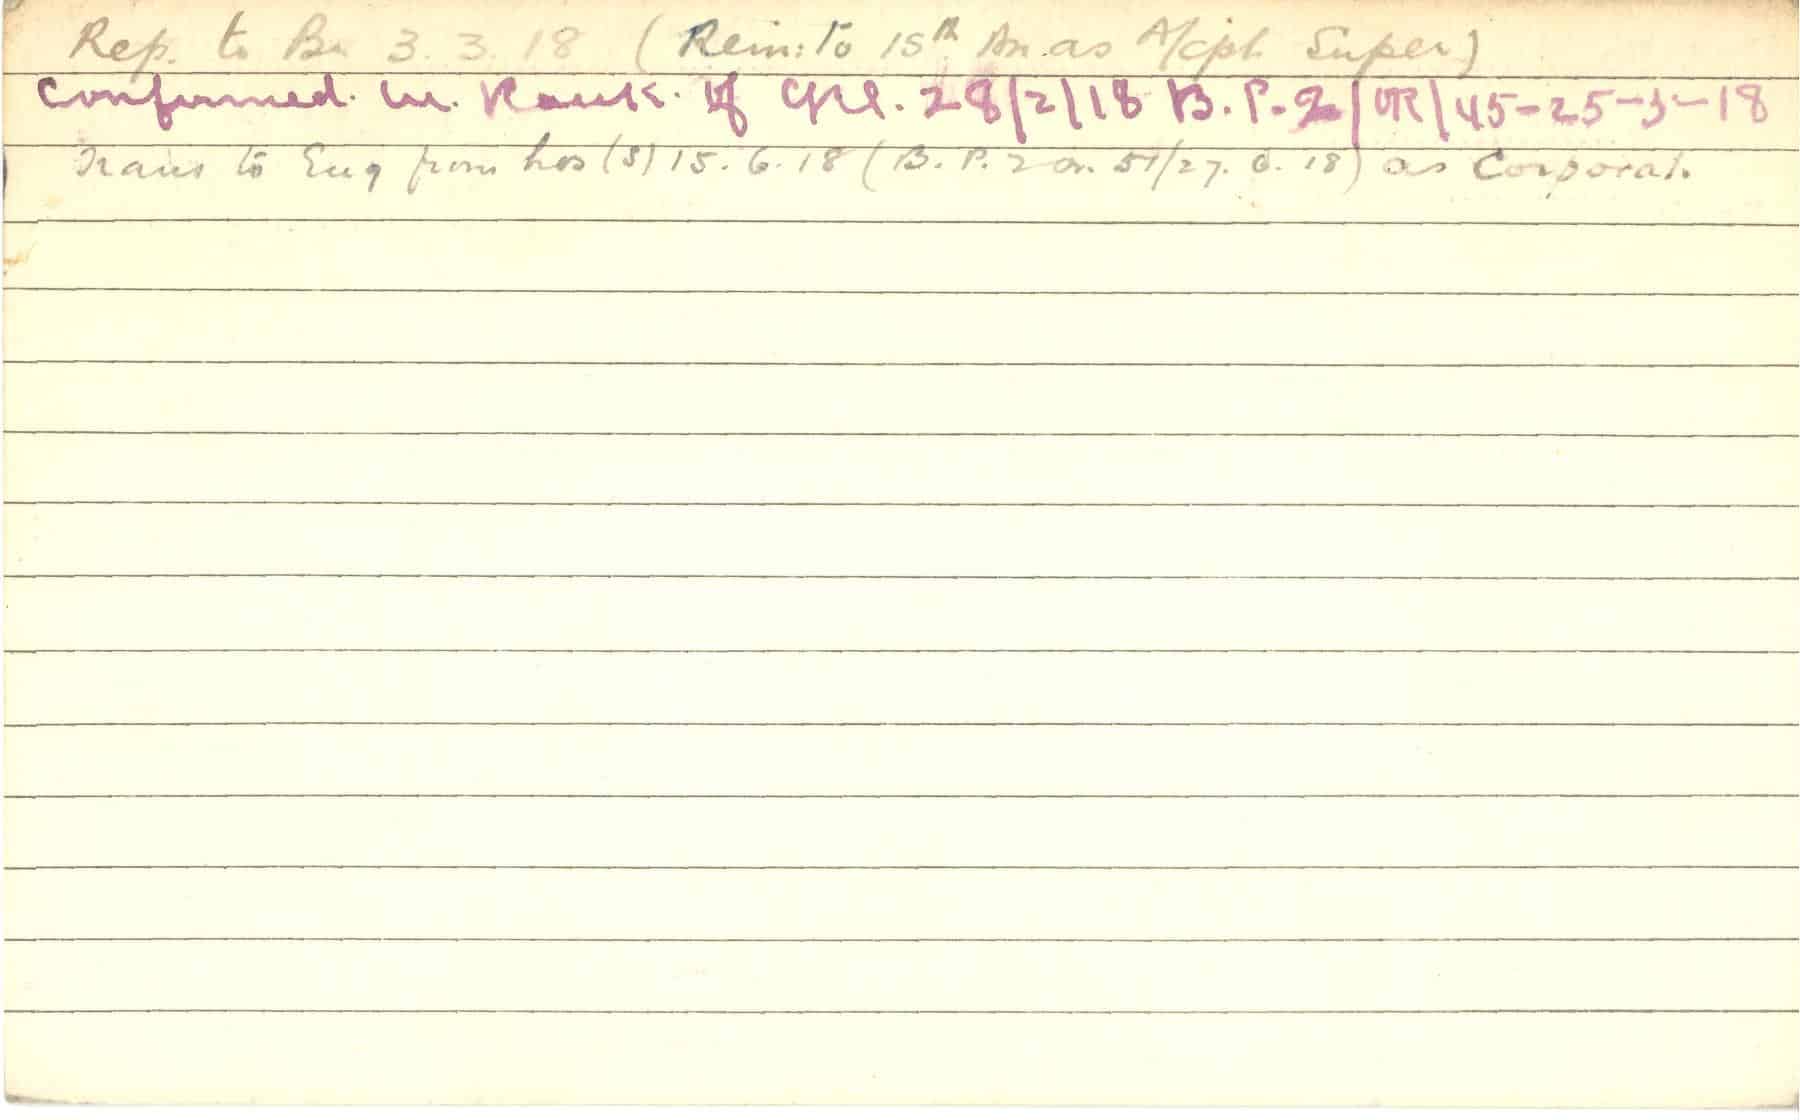 Rep. to Bn 3.3.18 (Rein: to 15th Bn. as A/cpl. Super)
Confirmed. in. Rank. of CPL. 28/2/18 B.P.2/OR/45-25-3-18
Trans to Eng from hos (S) 15.6.18 (B.P.2 or. 51/27.6.18) as Corporal.